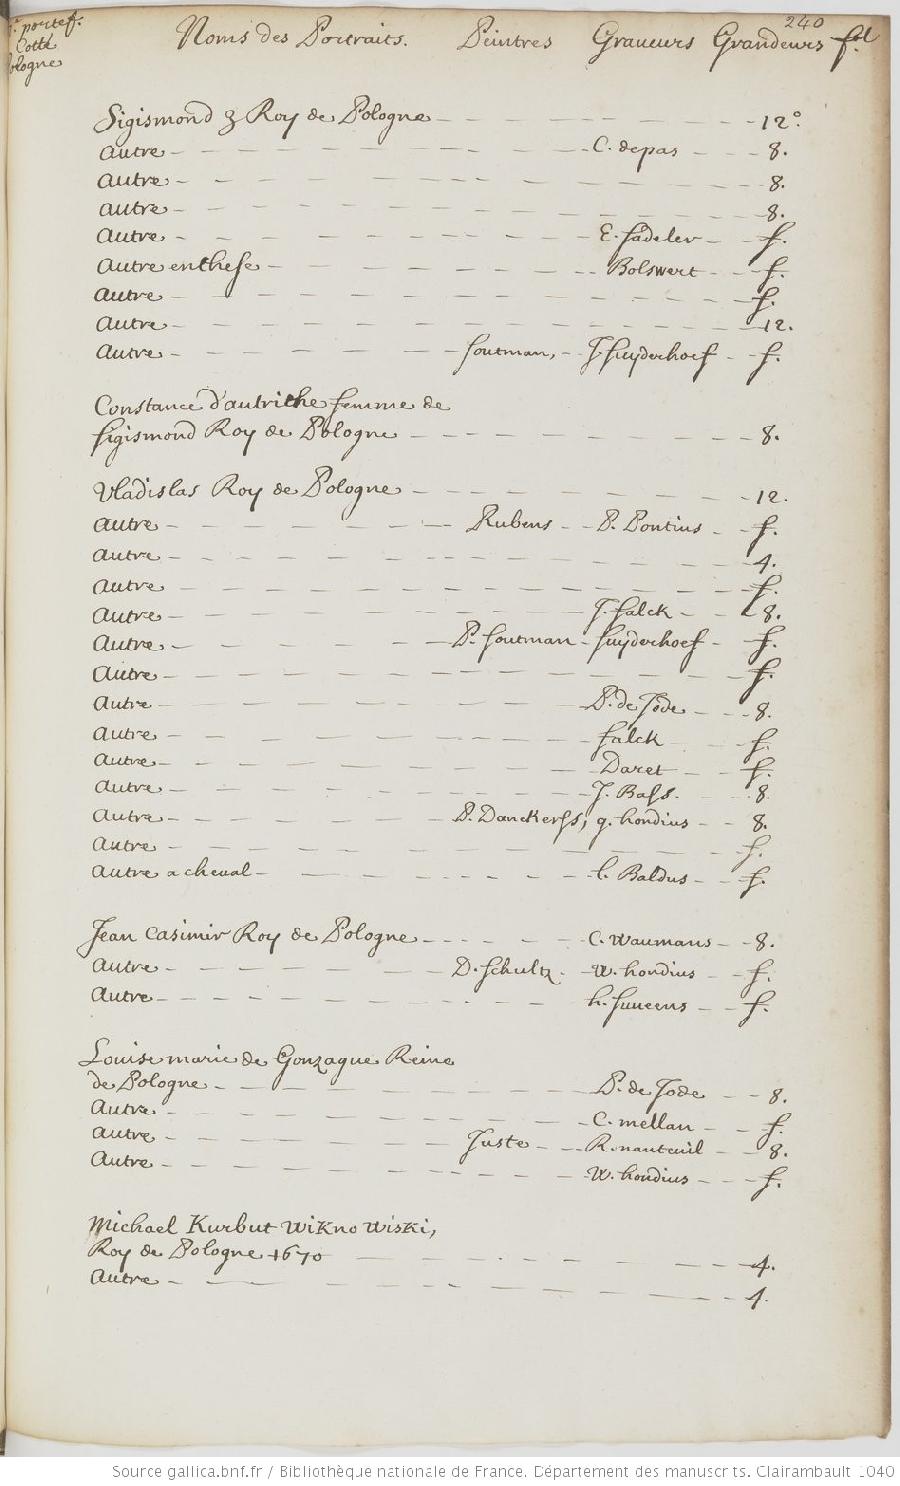 240
r. portef.
Cotté
pologne
Noms des Portraits. Peintres Graveurs Grandeurs fol.
Sigismond 3 Roy de Pologne 12°
Autre C. depas 8.
Autre 8.
Autre 8.
Autre E. Sadeler f.
Autre en these Bolswert f.
Autre f.
Autre 12.
Autre Soutman, J. Suyderhoef f.
Constance d'autriche femme de
Sigismond Roy de Pologne 8.
Vladislas Roy de Pologne 12.
Autre Rubens P. Pontius f.
Autre 4.
Autre f.
Autre J. falck 8.
Autre P. Soutman Suyderhoef f.
Autre f.
Autre P. de Jode 8.
Autre falck f.
Autre Daret f.
Autre J. Bass. 8
Autre P. Danckerss, g. hondius 8.
Autre f.
Autre a cheval C. Baldus f.
Jean Casimir Roy de Pologne C. Waumans 8.
Autre D. Schultz W. hondius f.
Autre h. Sueeens f.
Louise marie de Gonzague Reine
de Pologne P. de Jode 8.
Autre C. mellan f.
Autre Juste R. nanteuil 8.
Autre W. hondius f.
Michael Kurbut Wiknowiski,
Roy de Pologne 1670 4.
Autre 4.
Source gallica.bnf.fr / Bibliothèque nationale de France. Département des manuscrits. Clairambault 1040